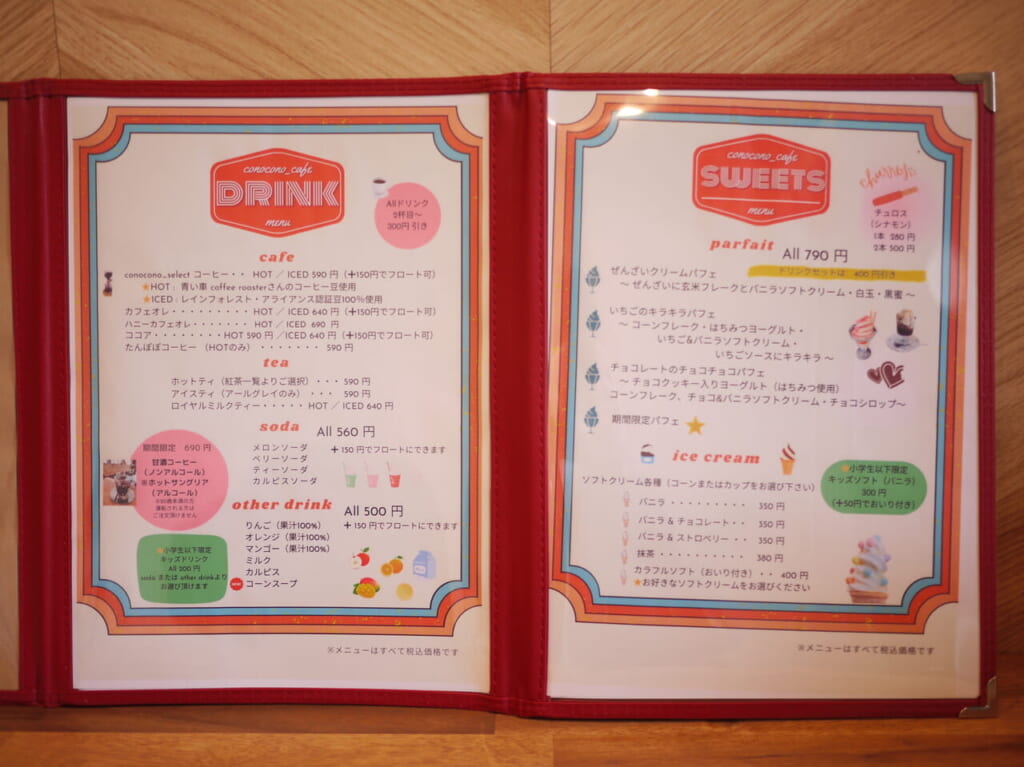 conocono_cafe
DRINK
menu
Allドリンク
2杯目〜
300円 引き
cafe
conocono_select コーヒー・・ HOT ／ ICED 590 円（+150円でフロート可）
★HOT： 青い車 coffee roasterさんのコーヒー豆使用
★ICED：レインフォレスト・アライアンス認証豆100％使用
カフェオレ・・・・・・・・・・ HOT ／ ICED 640 円（+150円でフロート可）
ハニーカフェオレ・・・・・・・・ HOT ／ ICED 690 円
ココア・・・・・・・・・HOT 590 円 ／ICED 640 円（+150円でフロート可）
たんぽぽコーヒー （HOTのみ） ・・・・・・・ 590 円
tea
ホットティ（紅茶一覧よりご選択） ・・・ 590 円
アイスティ（アールグレイのみ） ・・・ 590 円
ロイヤルミルクティー・・・・・ HOT ／ ICED 640 円
soda
All 560 円
メロンソーダ
+ 150 円でフロートにできます
ベリーソーダ
ティーソーダ
カルピスソーダ
期間限定 690 円
甘酒コーヒー
（ノンアルコール）
※ホットサングリア
（アルコール）
※20歳未満の方
運転される方は
ご注文頂けません
other drink
All 500 円
りんご（果汁100%）
+ 150 円でフロートにできます
オレンジ（果汁100%）
マンゴー（果汁100%）
ミルク
カルピス
コーンスープ
★小学生以下限定
キッズドリンク
All 200 円
soda または other drinkより
お選び頂けます
※メニューはすべて税込価格です
conocono_cafe
SWEETS
menu
churros
チュロス
（シナモン）
1本 280 円
2本 500 円
parfait
All 790 円
ドリンクセットは 400円引き
ぜんざいクリームパフェ
〜 ぜんざいに玄米フレークとバニラソフトクリーム・白玉・黒蜜 〜
いちごのキラキラパフェ
〜 コーンフレーク・はちみつヨーグルト・
いちご&バニラソフトクリーム・
いちごソースにキラキラ 〜
チョコレートのチョコチョコパフェ
〜 チョコクッキー入りヨーグルト（はちみつ使用）
コーンフレーク、チョコ&バニラソフトクリーム・チョコシロップ〜
期間限定パフェ
ice cream
ソフトクリーム各種（コーンまたはカップをお選び下さい）
バニラ ・・・・・・・・・・ 350 円
バニラ & チョコレート・・ 350 円
バニラ & ストロベリー・・ 350 円
抹茶 ・・・・・・・・・・ 380 円
カラフルソフト（おいり付き）・・ 400 円
★お好きなソフトクリームをお選びください
★小学生以下限定
キッズソフト（バニラ）
300 円
（+50円でおいり付き）
※メニューはすべて税込価格です